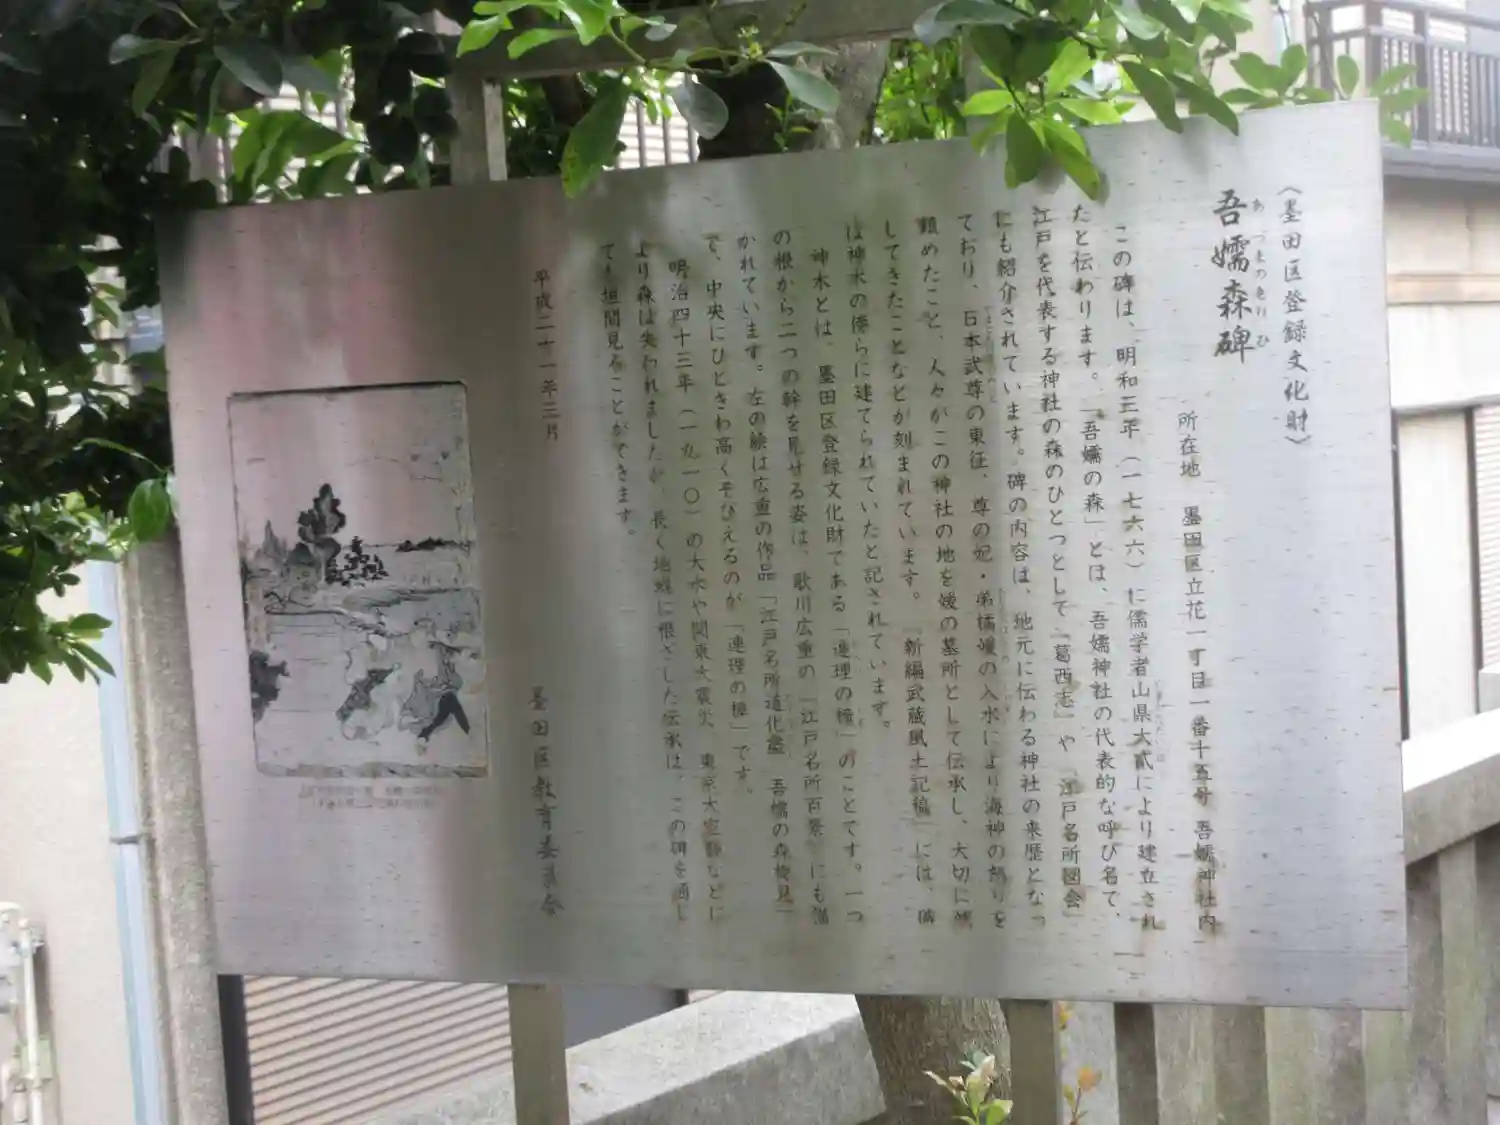 （墨田区登録文化財）
吾嬬森碑
あづまのもりひ
所在地　墨田区立花一丁目一番十五号 吾嬬神社内
この碑は、明和三年（一七六六）に儒学者山県大貳により建立され
たと伝わります。「吾嬬の森」とは、吾嬬神社の代表的な呼び名で、
江戸を代表する神社の森のひとつとして『葛西志』や『江戸名所図会』
にも紹介されています。碑の内容は、地元に伝わる神社の来歴となっ
ており、日本武尊の東征、尊の妃・弟橘媛の入水により海神の怒りを
鎮めたこと、人々がこの神社の地を媛の墓所として伝承し、大切に
してきたことなどが刻まれています。『新編武蔵風土記稿』には、碑
は神木の傍らに建てられていたと記されています。
神木とは、墨田区登録文化財である「連理の樟」のことです。一つ
の根から二つの幹を見せる姿は、歌川広重の『江戸名所百景』にも描
かれています。左の絵は広重の作品「江戸名所道化盡　吾嬬の森梅見」
で、中央にひときわ高くそびえるのが「連理の樟」です。
明治四十三年（一九一〇）の大水や関東大震災、東京大空襲などに
より森は失われましたが、長く地域に根ざした伝承は、この碑を通し
ても垣間見ることができます。
平成二十一年三月
墨田区教育委員会